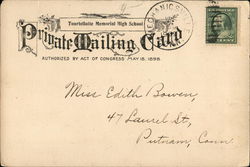 Tourtellotte Memorial High School
Private Mailing Card
AUTHORIZED BY ACT OF CONGRESS MAY 19, 1898.
Miss Edith Bowen,
47 Laurel St,
Putnam, Conn.